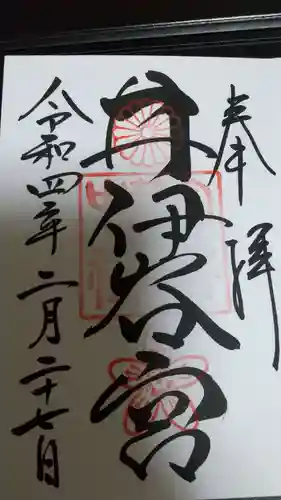 奉拝
井伊谷宮
令和四年二月二十七日